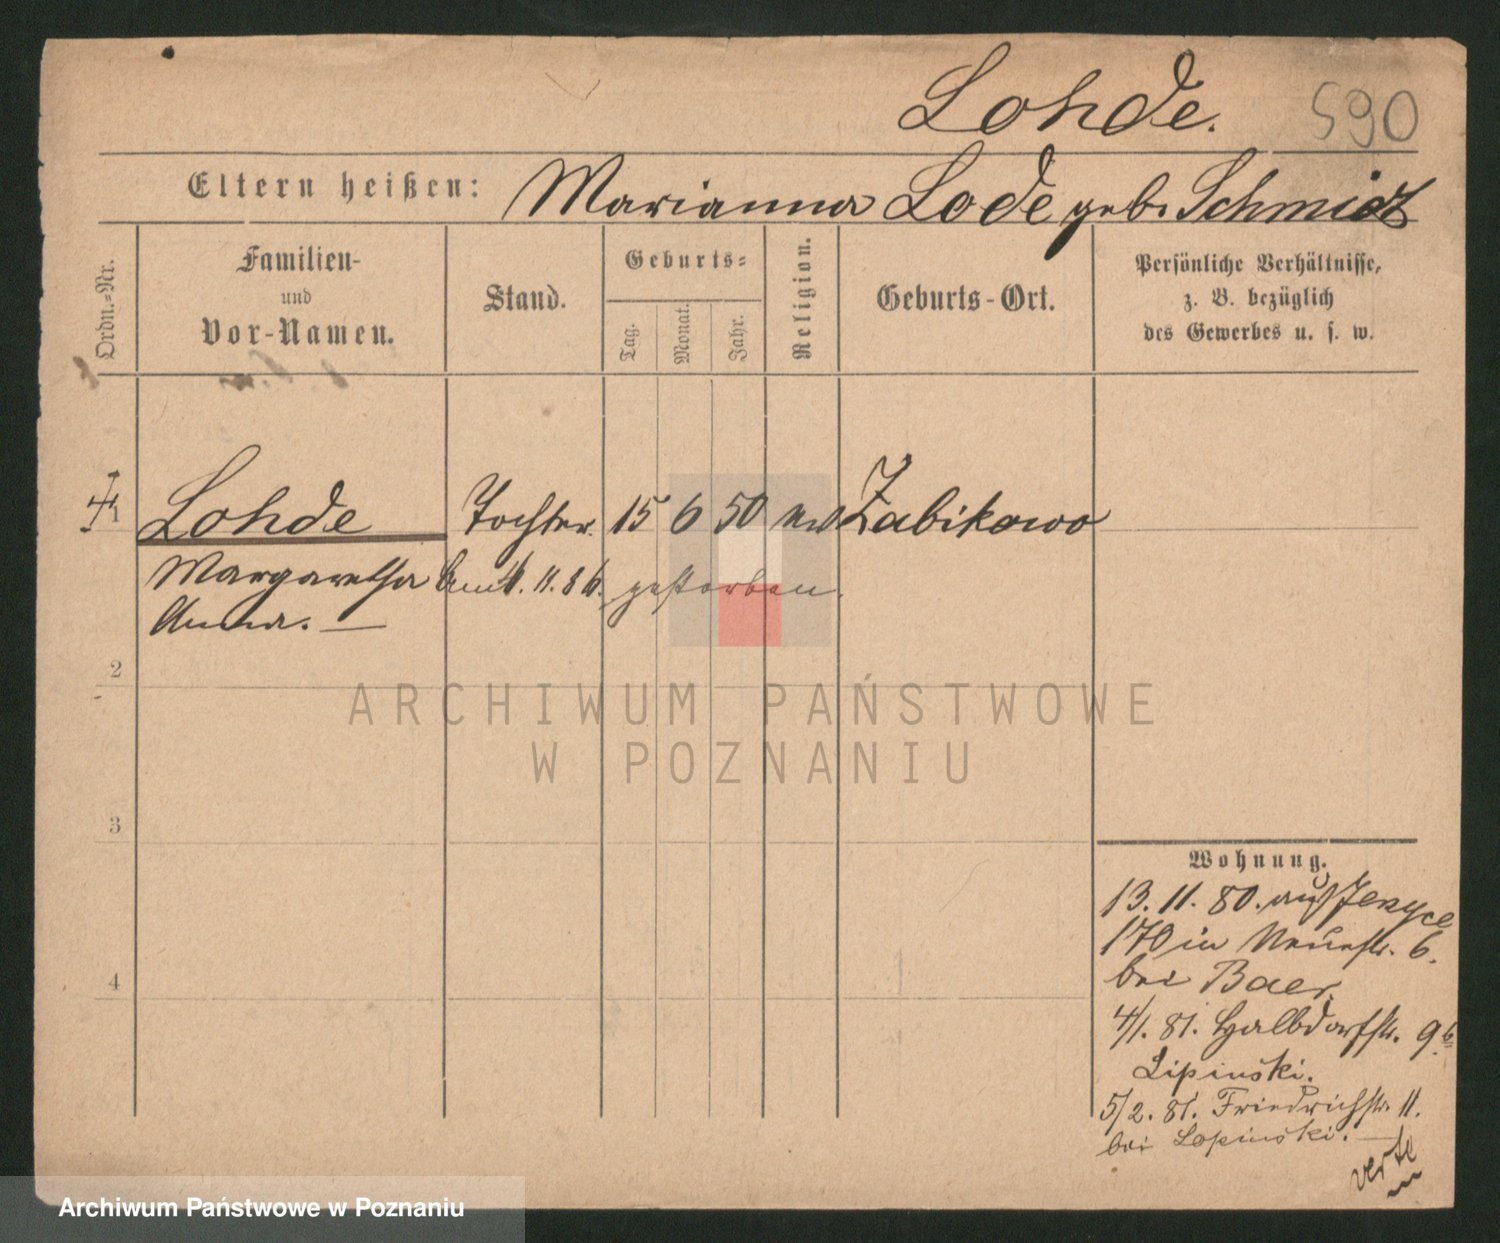 Lohde. 590
Eltern heißen: Marianna Lode geb. Schmidt
Ordn.-Nr.
Familien-
und
Vor-Namen.
Stand.
Geburts-
Tag.
Monat.
Jahr.
Religion.
Geburts-Ort.
Persönliche Verhältnisse,
z. B. bezüglich
des Gewerbes u. s. w.
1 Lohde Tochter. 15 6 50 Zabikowo
Margaretha 11. gestorben.
Anna. —
2
3
4
Wohnung.
13. 11. 80. auf Jerzyce
170 in Neuestr. 6.
bei Baer.
4/1. 81. Halbdorfstr. 9 b
Lipinski.
5/2. 81. Friedrichstr. 11.
bei Lopinski. —
verte
ARCHIWUM PAŃSTWOWE
W POZNANIU
Archiwum Państwowe w Poznaniu